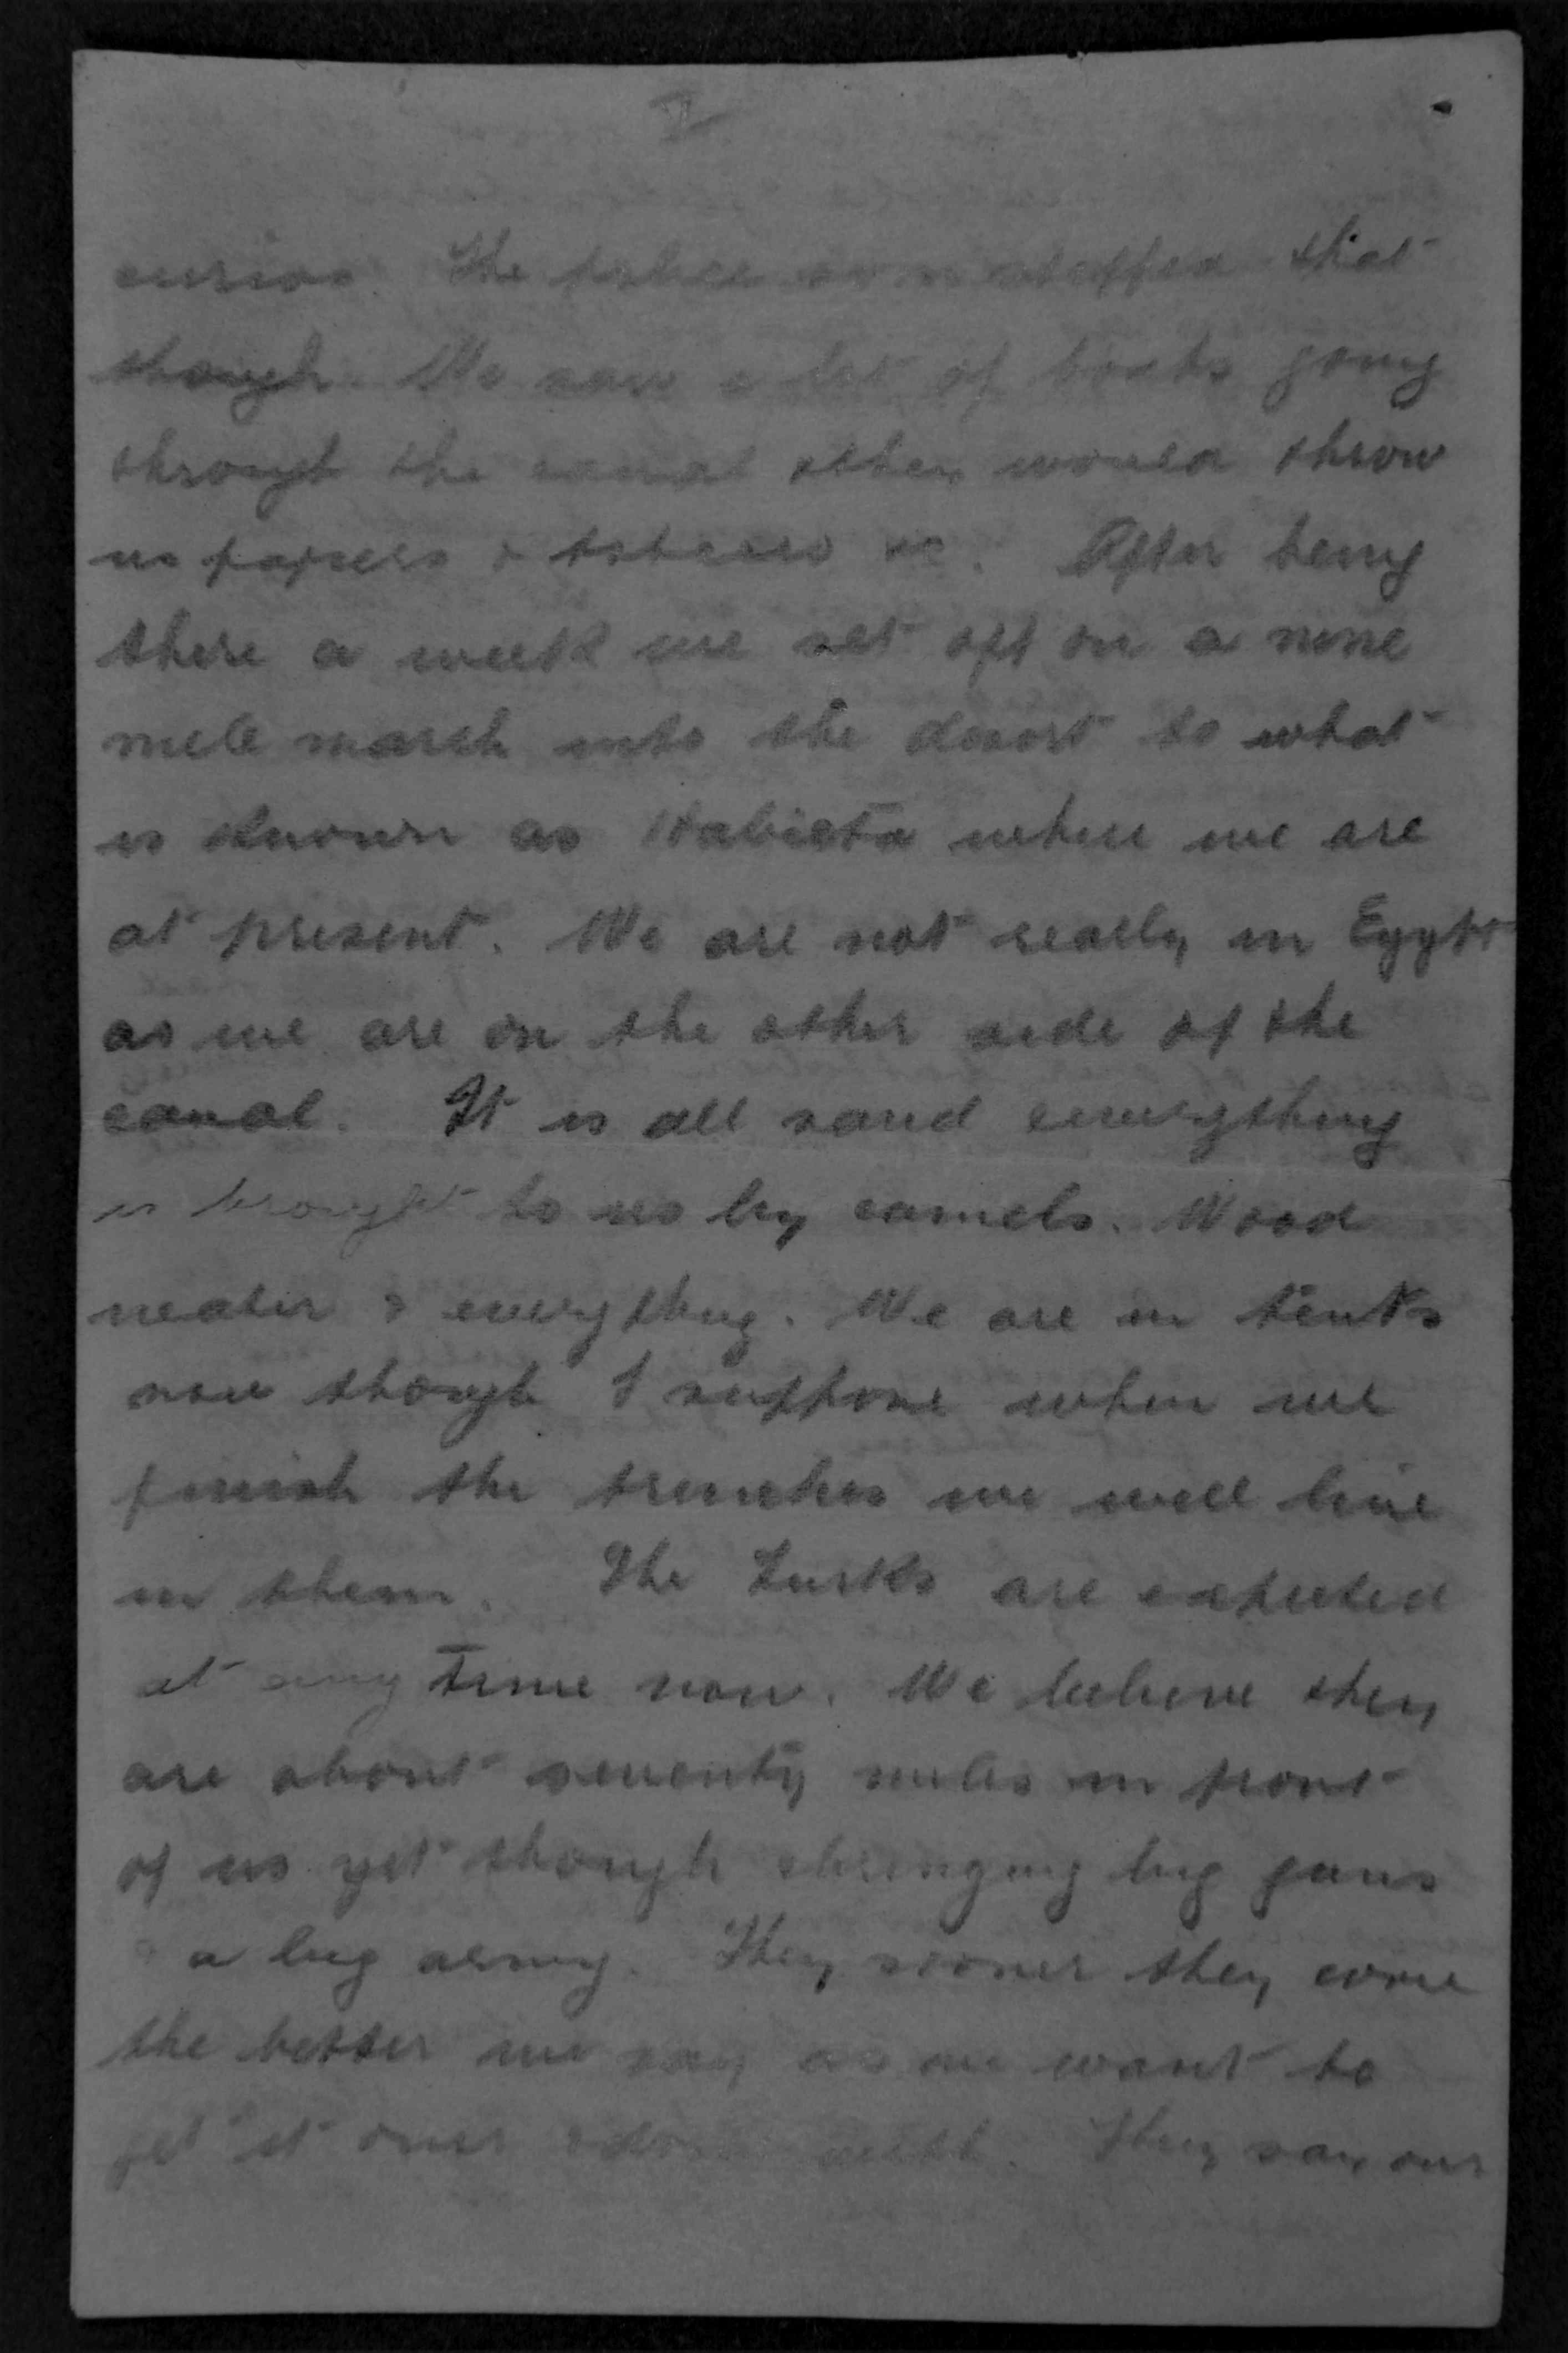 curios. The police soon stopped that
though. We saw a lot of boats going
through the canal & they would throw
us papers & tobacco &c. After being
there a week we set off on a nine
mile march into the desert to what
is known as Habieta where we are
at present. We are not really in Egypt
as we are on the other side of the
canal. It is all sand everything
is brought to us by camels. Wood
water & everything. We are in tents
now though I suppose when we
finish the trenches we will live
in them. The Turks are expected
at any time now. We believe they
are about seventy miles in front
of us yet though bringing big guns
& a big army. They sooner they come
the better we say as we want to
get it over & done with. They say our